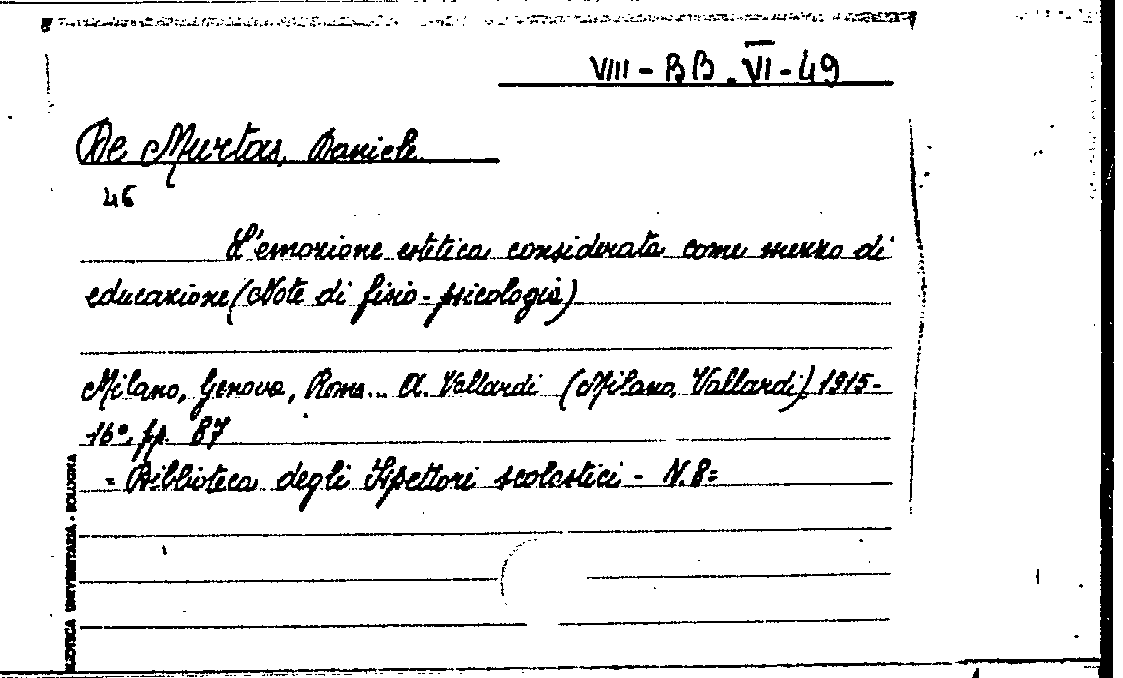 VIII - BB. VI - 49
De Murtas, Daniele
46
L'emozione estetica considerata come mezzo di
educazione (Note di fisio-psicologia)
Milano, Genova, Roma... A. Vallardi (Milano, Vallardi) 1915-
16°, pp. 87
= Biblioteca degli Ispettori scolastici - N. 8=
BIBLIOTECA UNIVERSITARIA - BOLOGNA